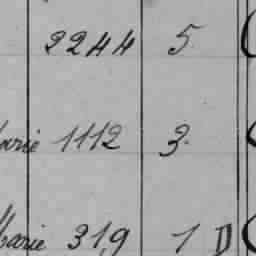 2244 5
arie 1112 3.
Marie 319 1 D